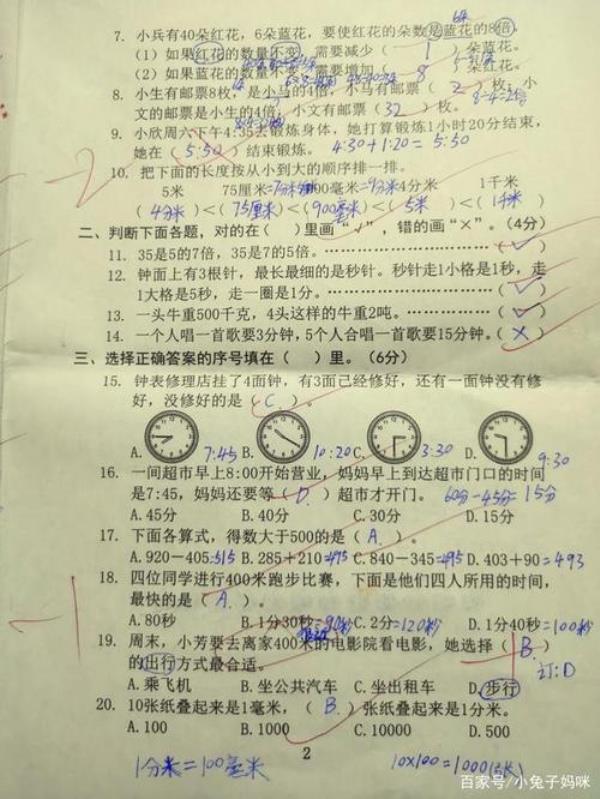 7. 小兵有40朵红花，6朵蓝花，要使红花的朵数是蓝花的8倍，
（1）如果红花的数量不变，需要减少（ 1 ）朵蓝花。
（2）如果蓝花的数量不变，需要增加（ 8 ）朵红花。
8. 小生有邮票8枚，是小马的4倍，小马有邮票（ 2 ）枚；小
文的邮票是小生的4倍，小文有邮票（ 32 ）枚。
9. 小欣周六下午4:35去锻炼身体，她打算锻炼1小时20分结束，
她在（ 5:50 ）结束锻炼。 4:30+1:20=5:50
10. 把下面的长度按从小到大的顺序排一排。
5米 75厘米=7分米 900毫米=9分米 4分米 1千米
（4分米）<（75厘米）<（900毫米）<（5米）<（1千米）
二、判断下面各题，对的在（ ）里画“√”，错的画“×”。（4分）
11. 35是5的7倍，35是7的5倍。（√）
12. 钟面上有3根针，最长最细的是秒针。秒针走1小格是1秒，走
1大格是5秒，走一圈是1分。（√）
13. 一头牛重500千克，4头这样的牛重2吨。（√）
14. 一个人唱一首歌要3分钟，5个人合唱一首歌要15分钟。（×）
三、选择正确答案的序号填在（ ）里。（6分）
15. 钟表修理店挂了4面钟，有3面已经修好，还有一面钟没有修
好，没修好的是（ C ）。
A. 7:45 B. 10:20 C. 3:30 D. 9:30
16. 一间超市早上8:00开始营业，妈妈早上到达超市门口的时间
是7:45，妈妈还要等（ D ）超市才开门。 60分-45分=15分
A. 45分 B. 40分 C. 30分 D. 15分
17. 下面各算式，得数大于500的是（ A ）。
A. 920－405=515 B. 285＋210=495 C. 840－345=495 D. 403＋90=493
18. 四位同学进行400米跑步比赛，下面是他们四人所用的时间，
最快的是（ A ）。
A. 80秒 B. 1分30秒=90秒 C. 2分=120秒 D. 1分40秒=100秒
19. 周末，小芳要去离家400米的电影院看电影，她选择（ B ）
的出行方式最合适。 订:D
A. 乘飞机 B. 坐公共汽车 C. 坐出租车 D. 步行
20. 10张纸叠起来是1毫米，（ B ）张纸叠起来是1分米。
A. 100 B. 1000 C. 10000 D. 500
1分米=100毫米 2 10×100=1000(张)
百家号/小兔子妈咪